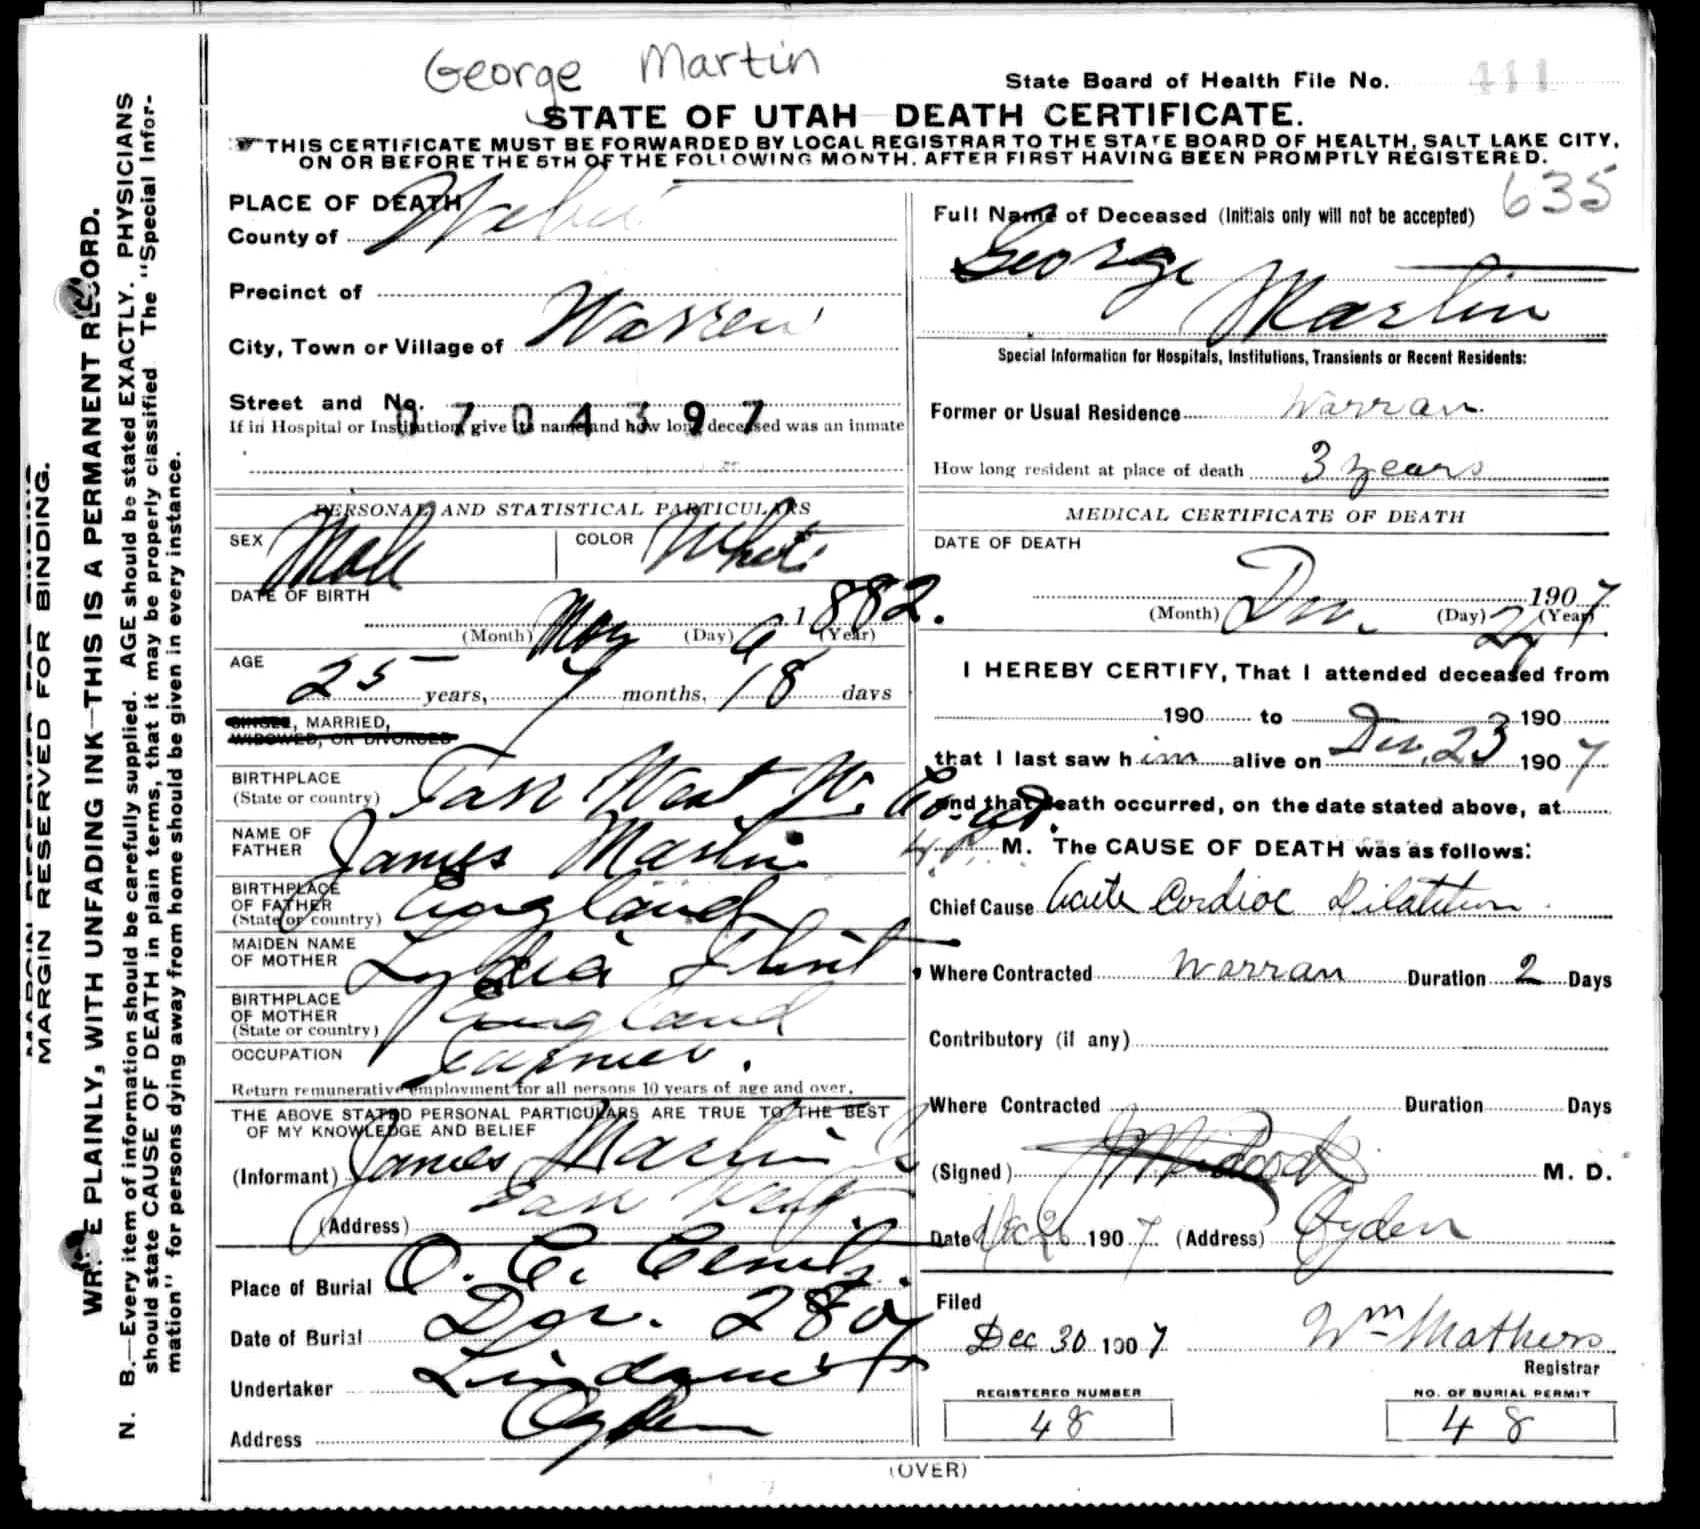 George Martin
State Board of Health File No. 411
STATE OF UTAH DEATH CERTIFICATE.
THIS CERTIFICATE MUST BE FORWARDED BY LOCAL REGISTRAR TO THE STATE BOARD OF HEALTH, SALT LAKE CITY,
ON OR BEFORE THE 5TH OF THE FOLLOWING MONTH, AFTER FIRST HAVING BEEN PROMPTLY REGISTERED.
635
MARGIN RESERVED FOR BINDING.
WRITE PLAINLY, WITH UNFADING INK—THIS IS A PERMANENT RECORD.
N. B.—Every item of information should be carefully supplied. AGE should be stated EXACTLY. PHYSICIANS
should state CAUSE OF DEATH in plain terms, that it may be properly classified. The "Special Infor-
mation" for persons dying away from home should be given in every instance.
PLACE OF DEATH
County of Weber
Precinct of
City, Town or Village of Warren
Street and No.
0704397
If in Hospital or Institution, give its name and how long deceased was an inmate
PERSONAL AND STATISTICAL PARTICULARS
SEX Male COLOR White
DATE OF BIRTH
(Month) May (Day) 9 1882. (Year)
AGE
25 years, 7 months, 18 days
SINGLE, MARRIED,
WIDOWED, OR DIVORCED
BIRTHPLACE
(State or country) Farr West W. Co. Ut.
NAME OF
FATHER James Martin
BIRTHPLACE
OF FATHER
(State or country) England
MAIDEN NAME
OF MOTHER Lydia Flint
BIRTHPLACE
OF MOTHER
(State or country) England
OCCUPATION Farmer.
Return remunerative employment for all persons 10 years of age and over.
THE ABOVE STATED PERSONAL PARTICULARS ARE TRUE TO THE BEST
OF MY KNOWLEDGE AND BELIEF
(Informant) James Martin
(Address) Farr West.
Place of Burial O. C. Cemty.
Date of Burial Dec. 28 07
Undertaker Lindquist
Address Ogden
Full Name of Deceased (Initials only will not be accepted)
George
Martin
Special Information for Hospitals, Institutions, Transients or Recent Residents:
Former or Usual Residence Warran
How long resident at place of death 3 years
MEDICAL CERTIFICATE OF DEATH
DATE OF DEATH
(Month) Dec. (Day) 27 1907 (Year)
I HEREBY CERTIFY, That I attended deceased from
190 to 190
that I last saw him alive on Dec. 23 1907
and that death occurred, on the date stated above, at
M. The CAUSE OF DEATH was as follows:
Chief Cause Acute Cardiac Dilatation
Where Contracted Warran Duration 2 Days
Contributory (if any)
Where Contracted Duration Days
(Signed) M. D.
Date Dec 26 1907 (Address) Ogden
Filed
Dec 30 1907 Wm Mathers
Registrar
REGISTERED NUMBER
48
NO. OF BURIAL PERMIT
48
(OVER)